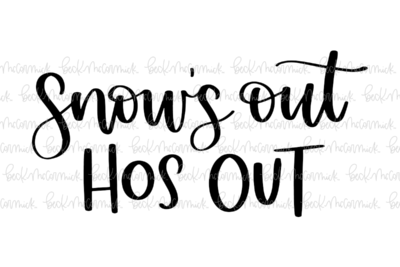 Snow's out
HOS OUT